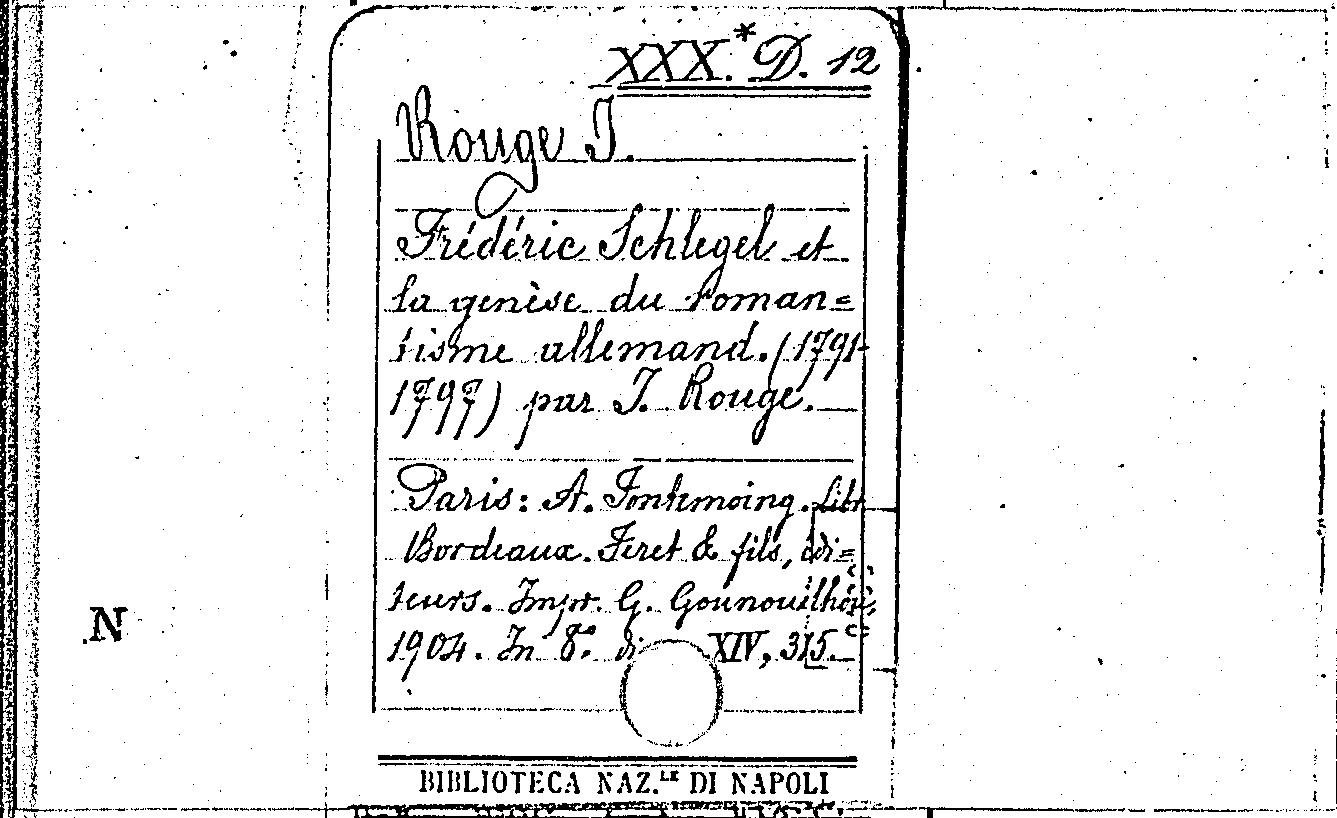 XXX.* D. 12
Rouge J.
Frédéric Schlegel et
la genèse du roman=
tisme allemand. (1791-
1797) par J. Rouge.
Paris: A. Fontemoing. Libr
Bordeaux. Feret & fils, édi=
teurs. Impr. G. Gounouilhou,
1904. In 8.° di XIV, 315.
N
BIBLIOTECA NAZ.LE DI NAPOLI